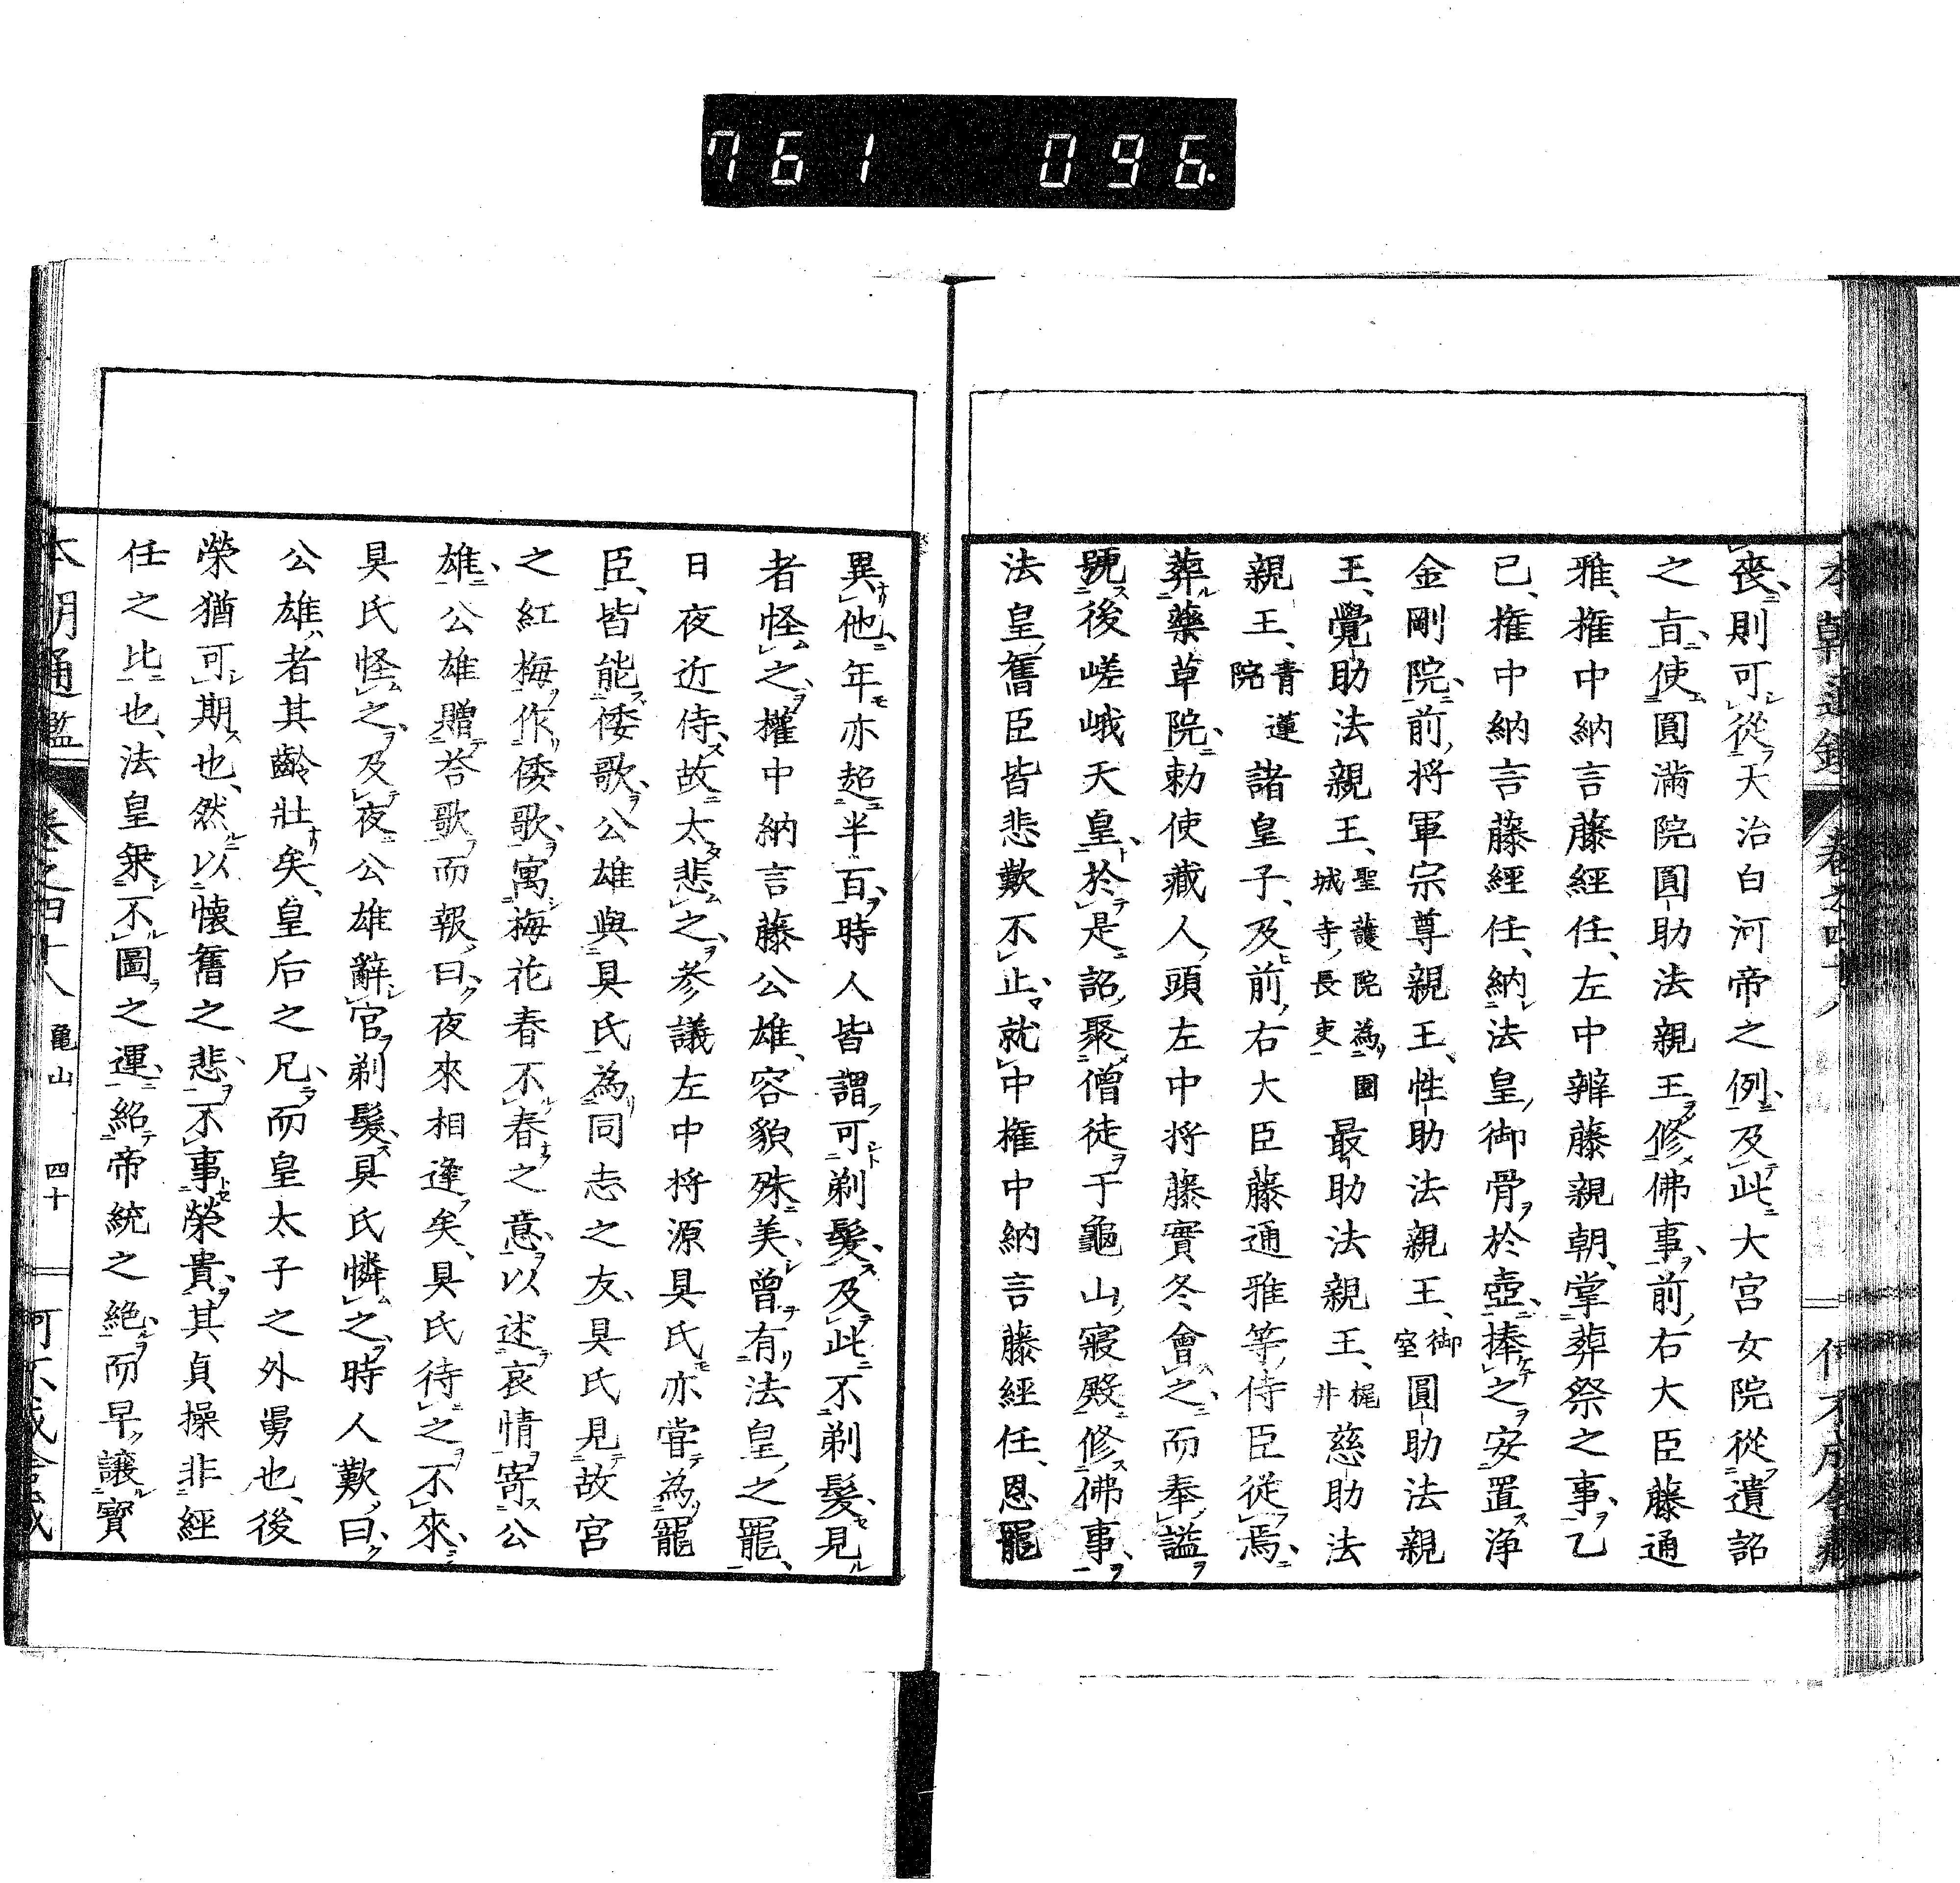 761 096.
喪則可從天治白河帝之例及此大宮女院從遺詔
之旨使圓滿院圓助法親王修佛事前右大臣藤通
雅權中納言藤經任左中辨藤親朝掌葬祭之事乙
已權中納言藤經任納法皇御骨於壺捧之安置淨
金剛院前將軍宗尊親王性助法親王御室圓助法親
王覺助法親王聖護院為園城寺長吏最助法親王梶井慈助法
親王青蓮院諸皇子及前右大臣藤通雅等侍臣從焉
葬藥草院勅使藏人頭左中將藤實冬會之而奉謚
號後嵯峨天皇於是詔聚僧徒于龜山寢殿修佛事
法皇舊臣皆悲歎不止就中權中納言藤經任恩寵
異他年亦超半百時人皆謂可剃髮及此不剃髮見
者怪之權中納言藤公雄容貌殊美曾有法皇之寵
日夜近侍故太悲之參議左中將源具氏亦嘗為寵
臣皆能倭歌公雄與具氏為同志之友具氏見故宮
之紅梅作倭歌寓梅花春不春之意以述哀情寄公
雄公雄贈荅歌而報曰夜來相逢矣具氏待之不來
具氏怪之及夜公雄辭官剃髮具氏憐之時人歎曰
公雄者其齡壯矣皇后之兄而皇太子之外舅也後
榮猶可期也然以懷舊之悲不事榮貴其貞操非經
任之比也法皇乘不圖之運紹帝統之絶而早讓寶
本朝通鑑 卷之四十八 亀山 四十